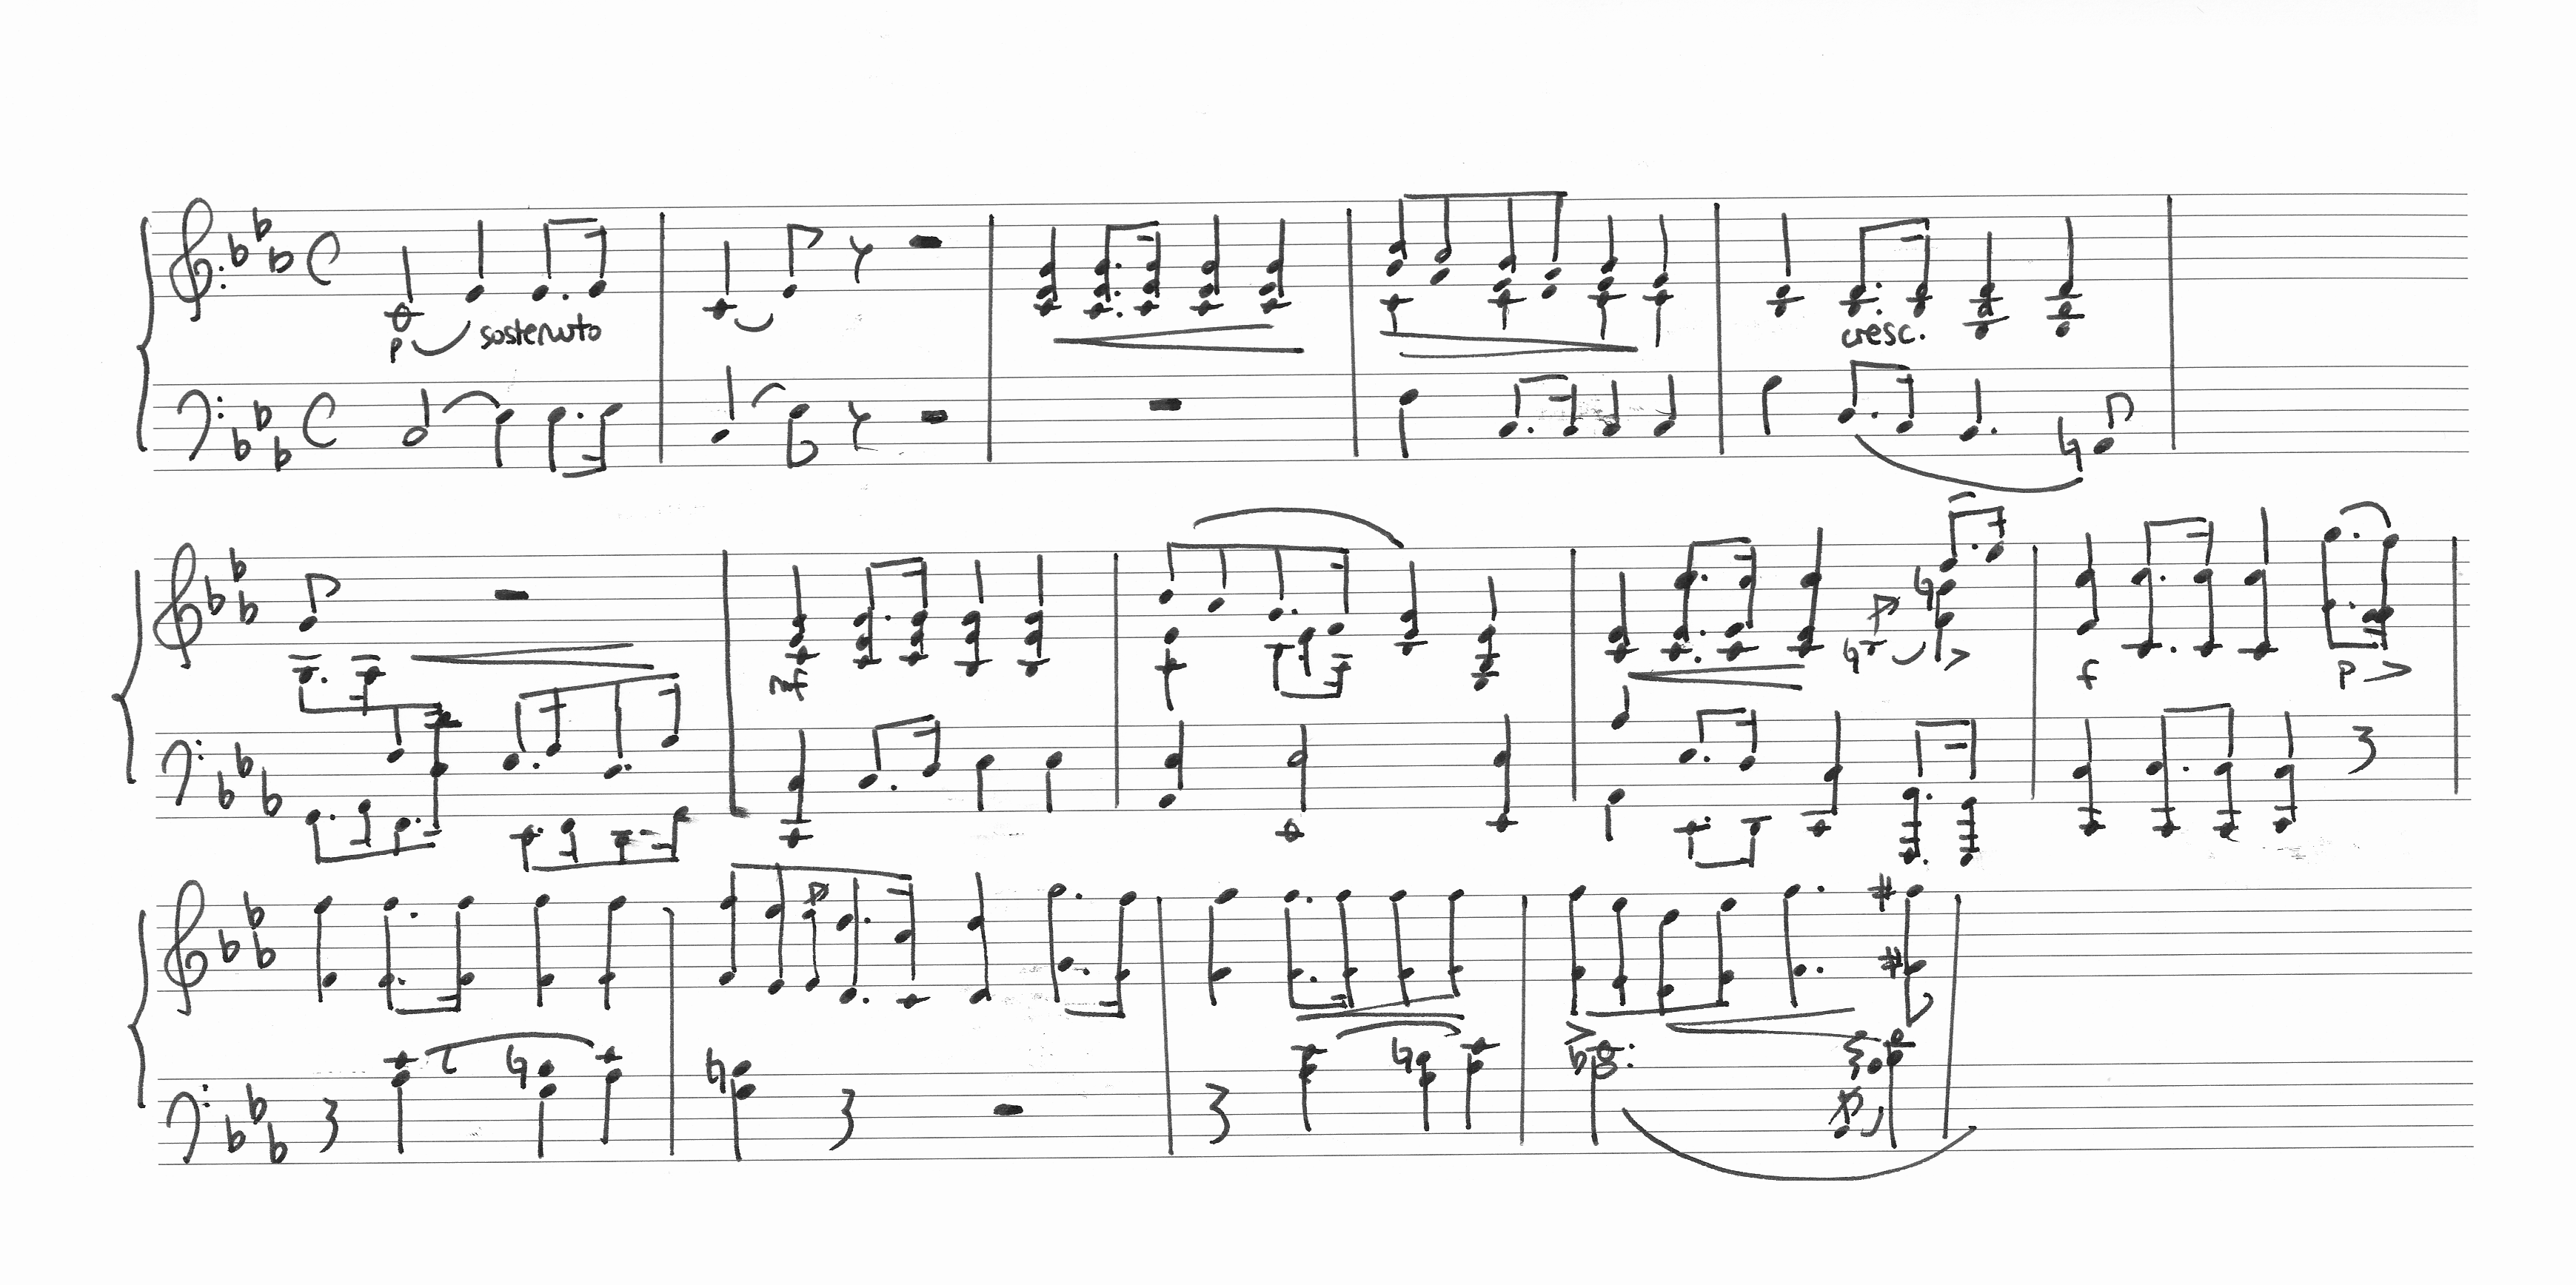 p sostenuto cresc.
mf f p